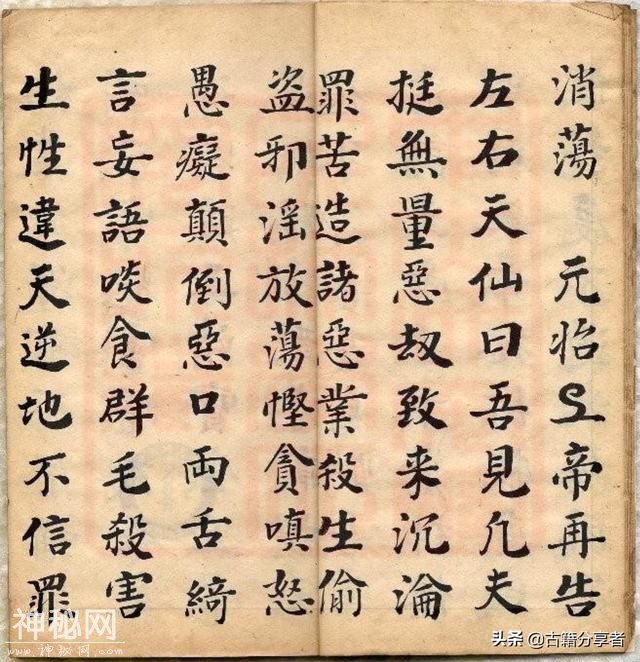 消蕩　元始上帝再告
左右天仙曰吾見凢夫
挺無量惡劫致来沉淪
罪苦造諸惡業殺生偷
盗邪淫放蕩慳貪嗔怒
愚癡顛倒惡口両舌綺
言妄語啖食群毛殺害
生性違天逆地不信罪
神秘网
www.神秘网.com
头条 @古籍分享者